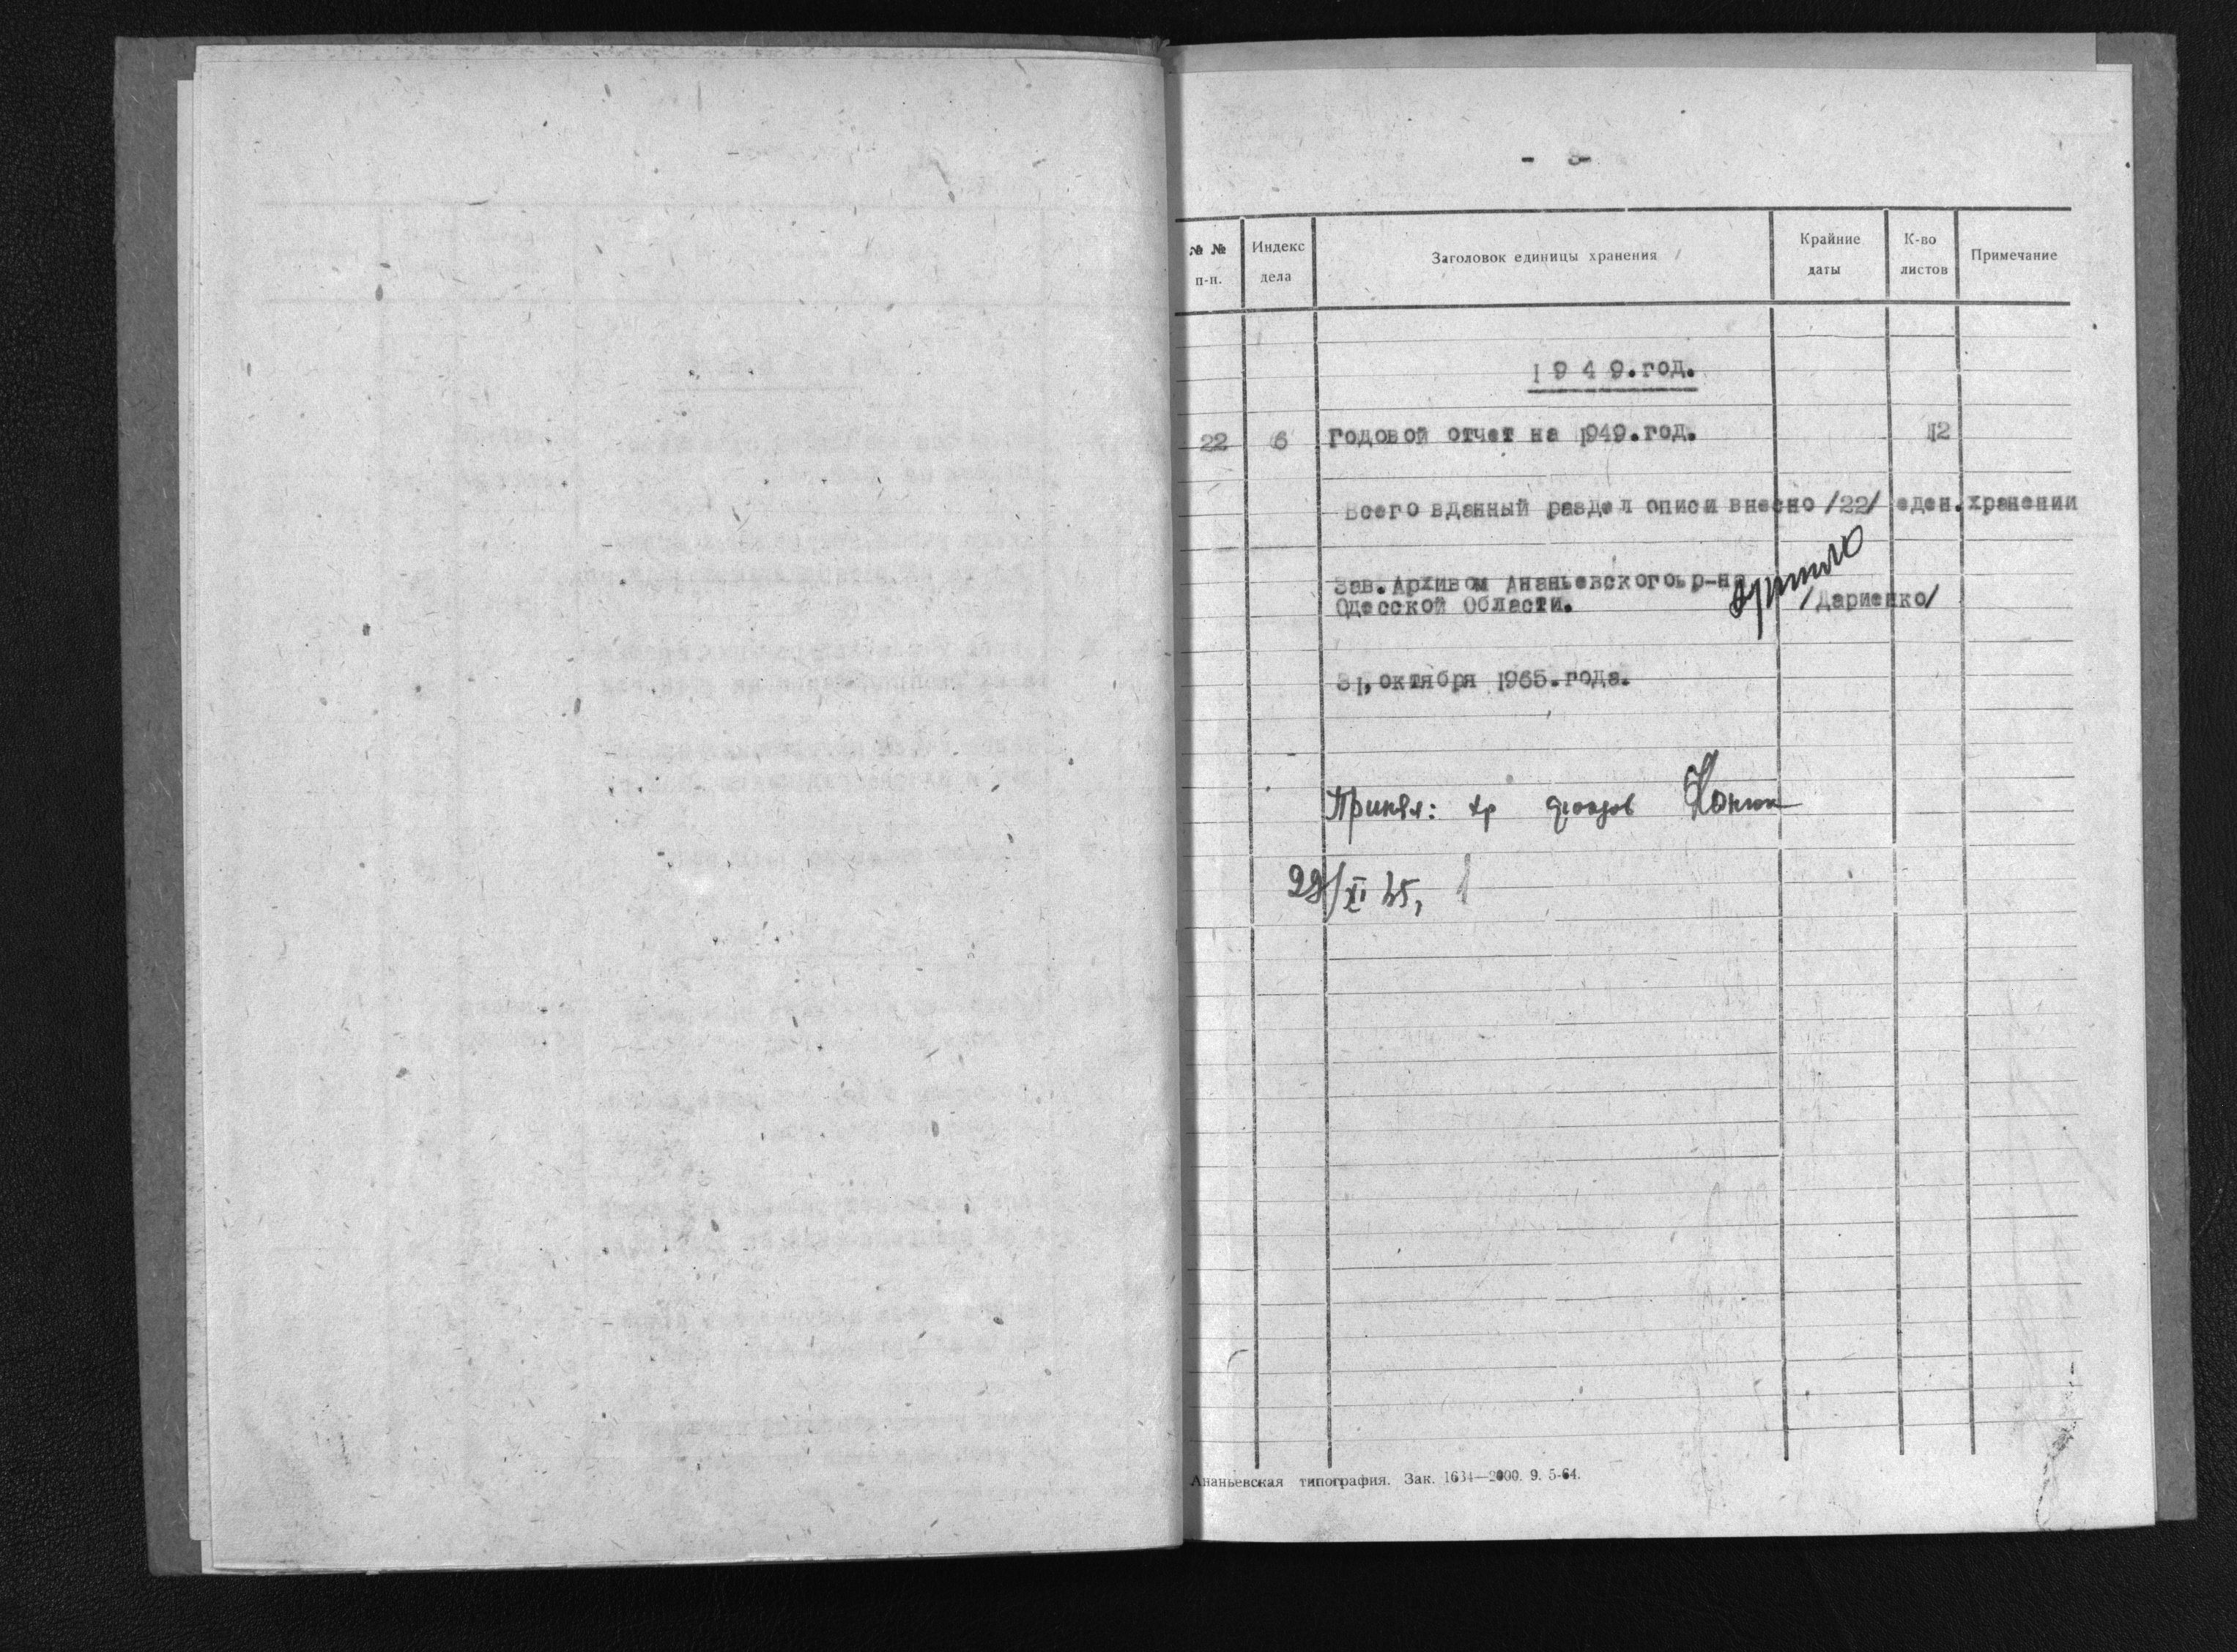 - 3-
№ № п-п.
Индекс дела
Заголовок единицы хранения
Крайние даты
К-во листов
Примечание
1 9 4 9.год.
22 6 Годовой отчет на 1949.год. 12
Всего вданный раздел описи внесно /22/ еден.хранении
Зав.Архивом Ананьевского р-на
Одесской Области. /Дариенко/
31,октября 1965.года.
Принял: хр фондов
29/XI 65,
Ананьевская типография. Зак. 1634—2000. 9. 5-64.